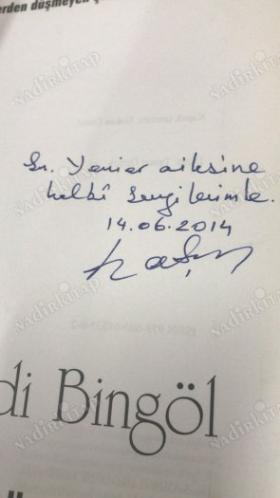 erden düşmeyen
Sn. Yener ailesine
kalbî sevgilerimle.
14.06.2014
di Bingöl
nadirkitap